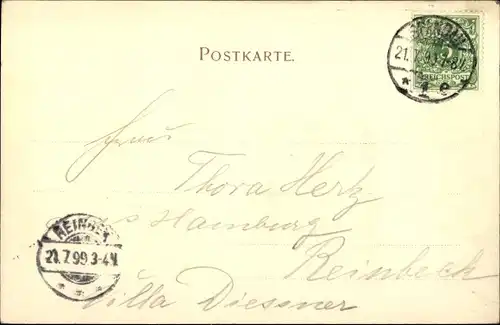 POSTKARTE.
5
REICHSPOST
21.7.99
* 1 e
Frau
Thora Hertz
Hamburg
Reinbeck
Villa Diessner
REINBEK
21.7.99 3-4N.
* * *